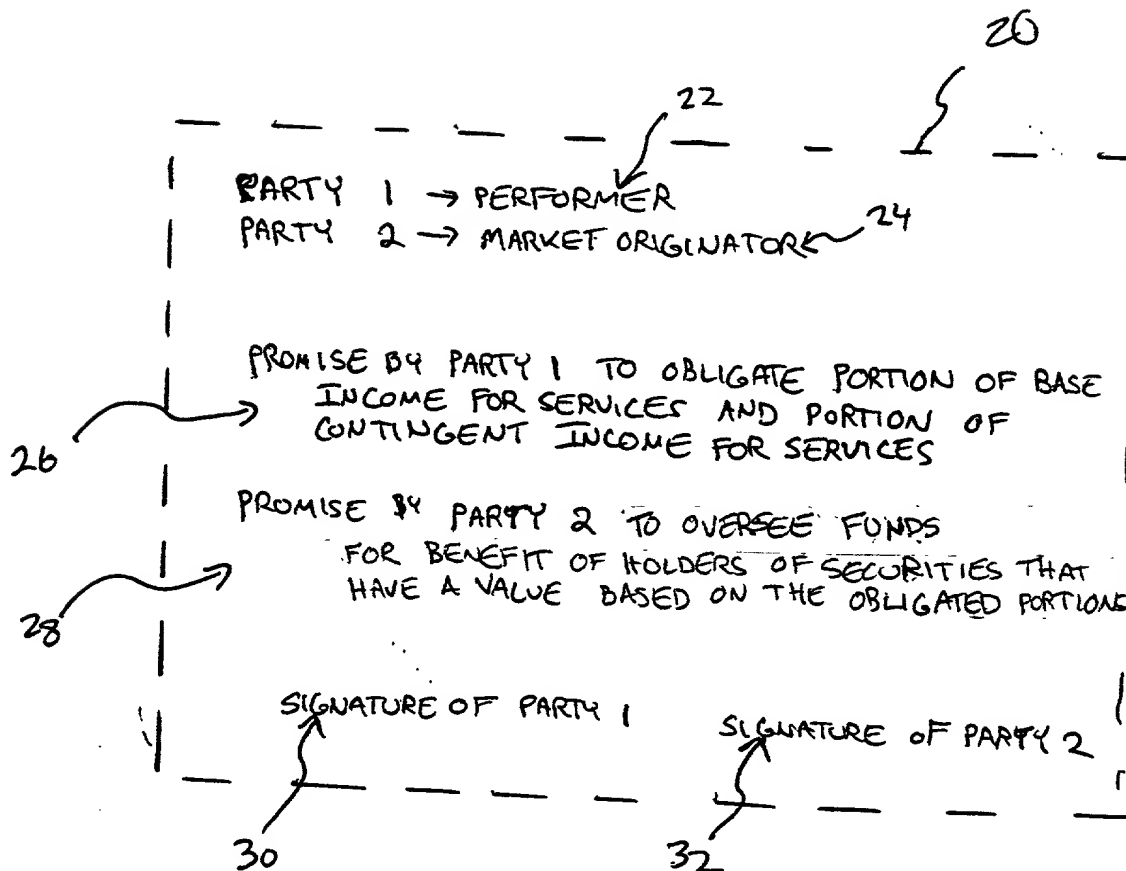 20
22
PARTY 1 → PERFORMER
PARTY 2 → MARKET ORIGINATOR
24
PROMISE BY PARTY 1 TO OBLIGATE PORTION OF BASE
INCOME FOR SERVICES AND PORTION OF
CONTINGENT INCOME FOR SERVICES
26
PROMISE BY PARTY 2 TO OVERSEE FUNDS
FOR BENEFIT OF HOLDERS OF SECURITIES THAT
HAVE A VALUE BASED ON THE OBLIGATED PORTIONS
28
SIGNATURE OF PARTY 1
SIGNATURE OF PARTY 2
30
32